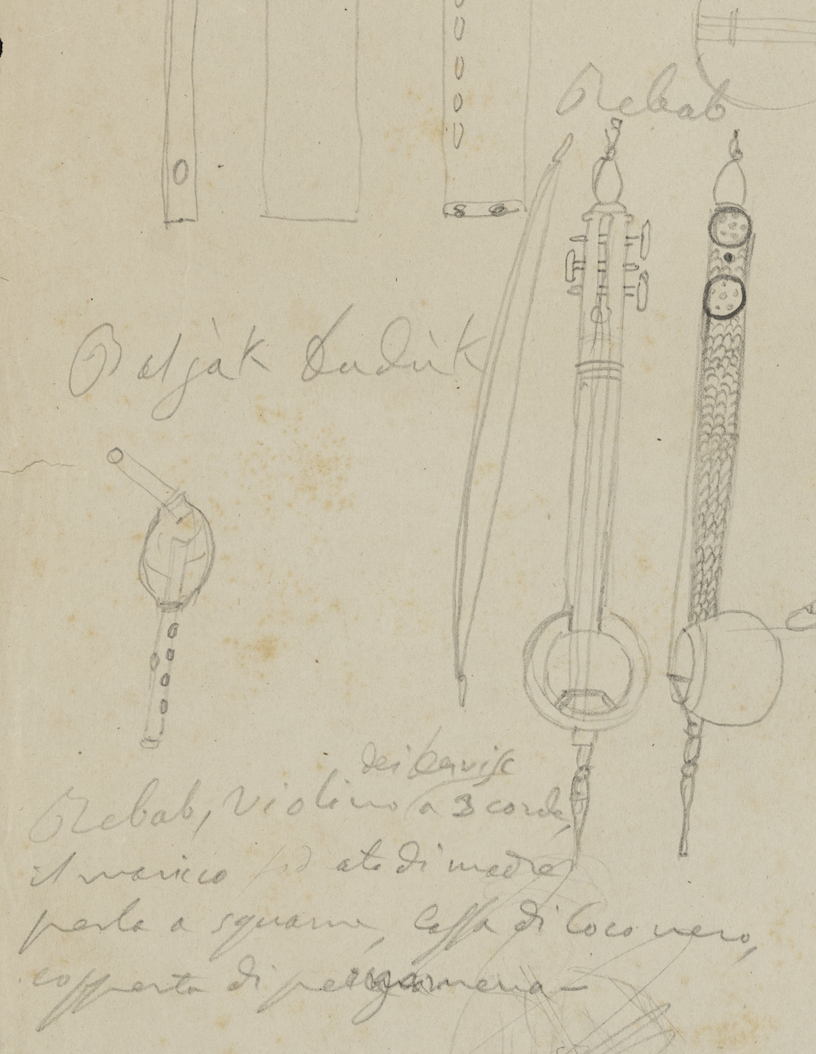 Rebab
Baljàk Dudùk
dei Dervisc
Rebab, violino a 3 corde,
il manico ato di madre
perla a squame, Cassa di Coco nero,
copperta di pergamena —